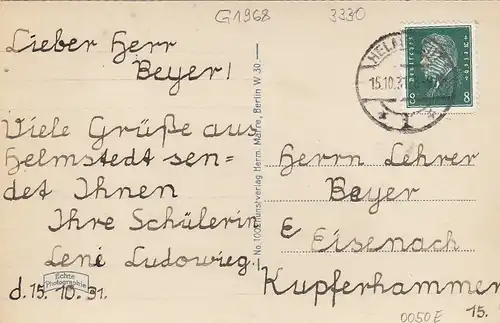 G1968
3330
Lieber Herr
Beyer!
Viele Grüße aus
Helmstedt sen=
det Ihnen
Ihre Schülerin
Leni Ludowieg.
d. 15. 10. 31.
Echte
Photographie
Kunstverlag Herm. Mafre, Berlin W 30
Deutsches Reich
8 8
15.10.31
* 1 *
Herrn Lehrer
Beyer
E Eisenach
Kupferhammer
15.
0050E